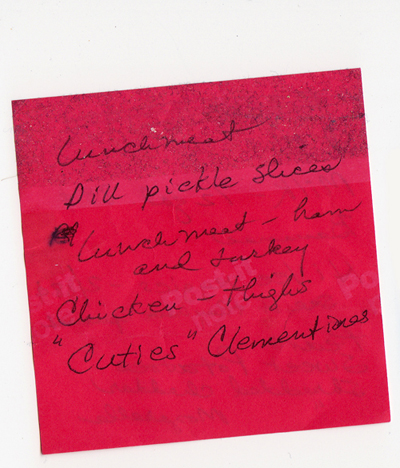 Lunchmeat
Dill pickle slices
Lunchmeat - ham
and turkey
Chicken - thighs
"Cuties" Clementines
Post-it
note
Post-it
note
Po
no